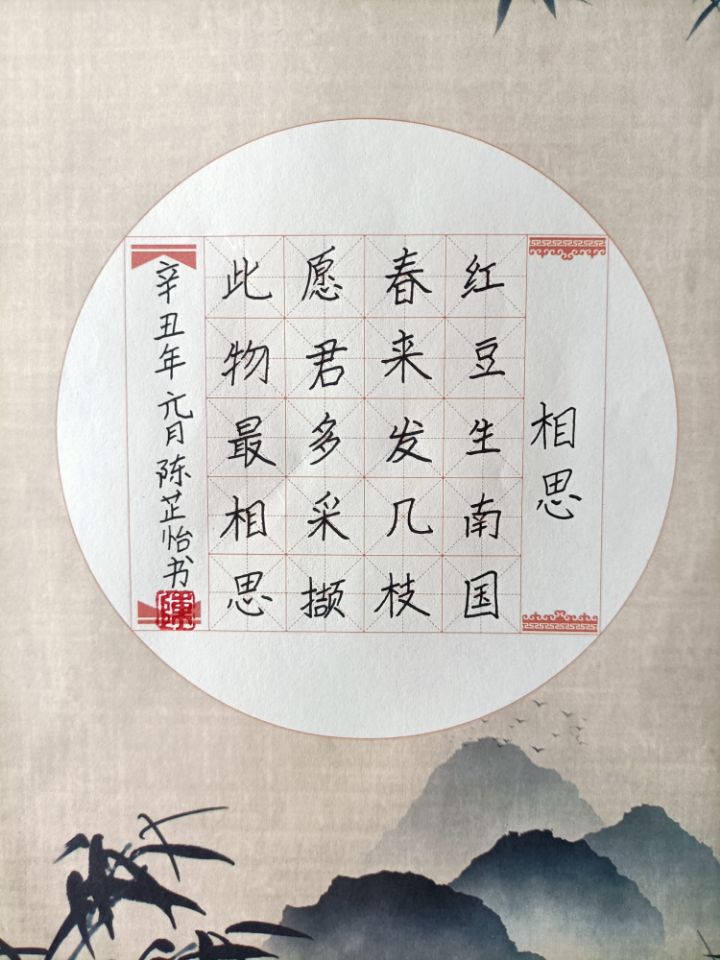 相思
红豆生南国
春来发几枝
愿君多采撷
此物最相思
辛丑年元月陈芷怡书
陳